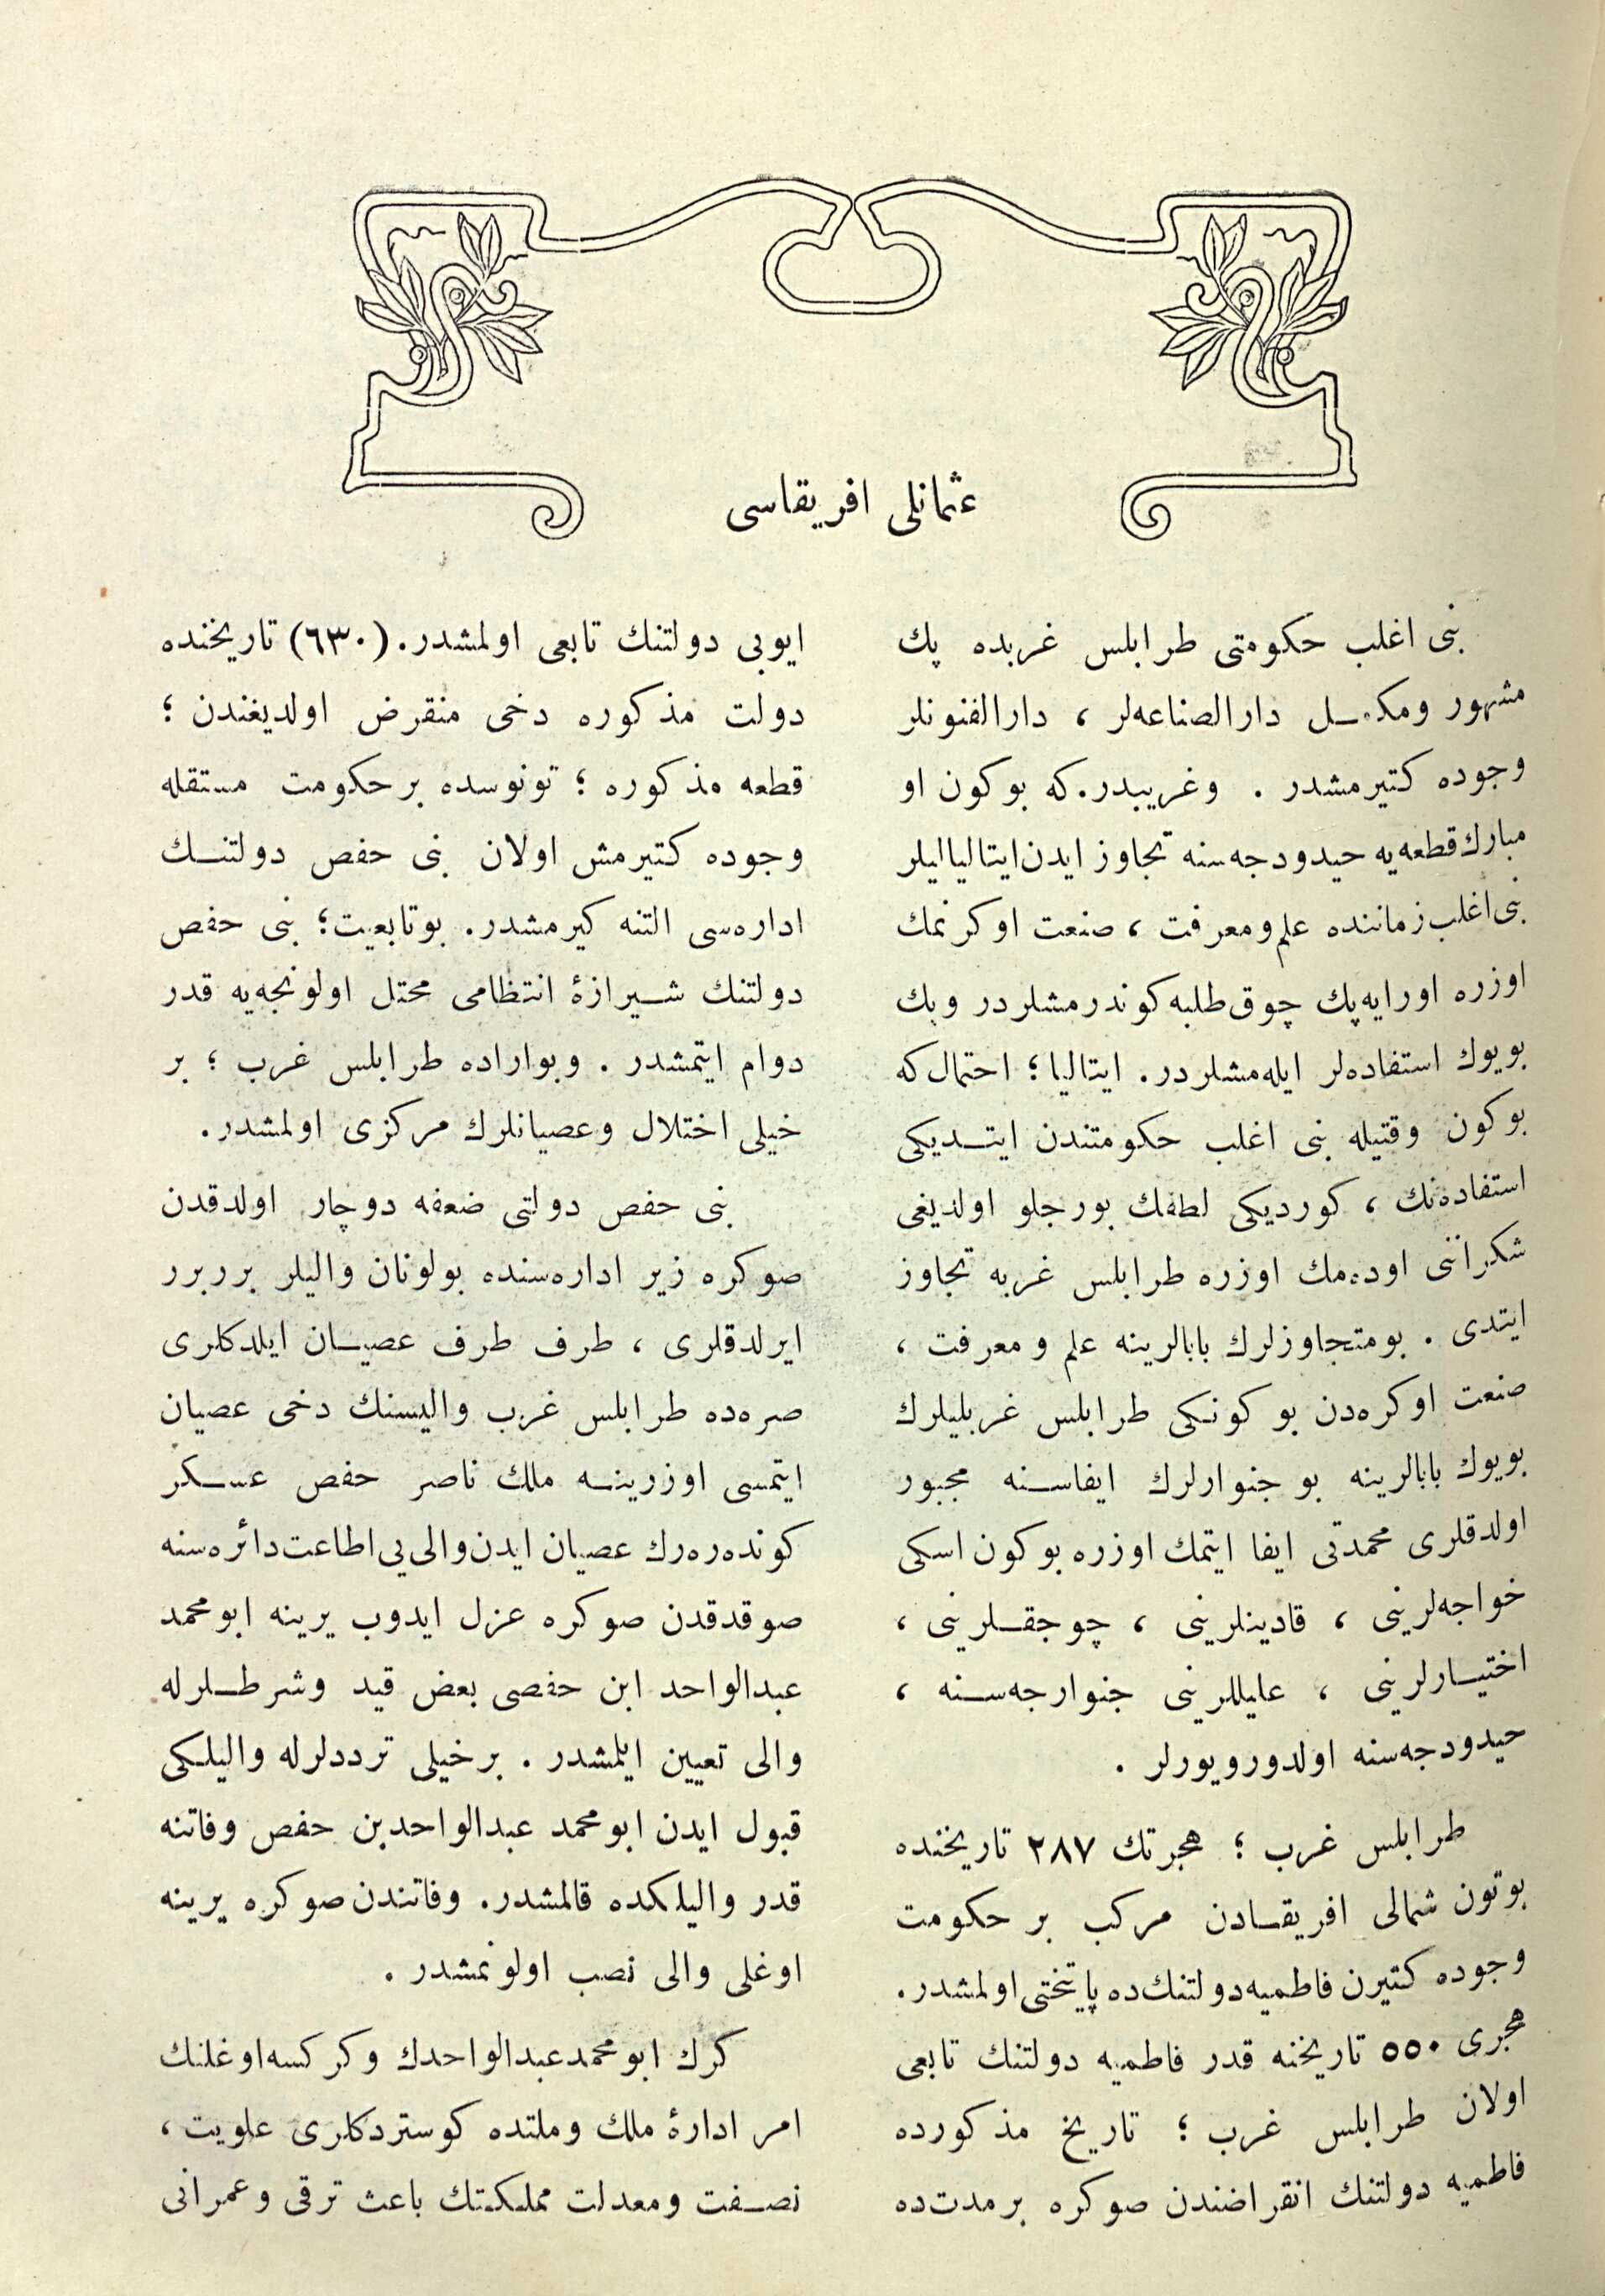 عثمانلی افریقاسی
بنی اغلب حكومتی طرابلس غربده پك
مشهور ومكمـل دارالصناعه‌لر ، دارالفنونلر
وجوده كتیرمشدر . وغریبدر.كه بوكون او
مبارك قطعه‌یه حیدودجه‌سنه تجاوز ایدن ایتالیالیلر
بنی اغلب زماننده علم ومعرفت ، صنعت اوكرنمك
اوزره اورایه پك چوق طلبه كوندرمشلردر وپك
بویوك استفاده‌لر ایله‌مشلردر. ایتالیا ؛ احتمال كه
بوكون وقتیله بنی اغلب حكومتندن ایتـدیكی
استفاده‌نك ، كوردیكی لطفك بورجلو اولدیغی
شكراننی اوده‌مك اوزره طرابلس غربه تجاوز
ایتدی . بومتجاوزلرك بابالرینه علم و معرفت ،
صنعت اوكره‌دن بو كونكی طرابلس غربلیلرك
بویوك بابالرینه بو جنوارلرك ایفاسـنه مجبور
اولدقلری محمدتی ایفا ایتمك اوزره بوكون اسكی
خواجه‌لرینی ، قادینلرینی ، چوجقـلرینی ،
اختیـارلرینی ، علیللرینی جنوارجه‌سـنه ،
حیدودجه‌سنه اولدورویورلر .
طرابلس غرب ؛ هجرتك ۲۸۷ تاریخنده
بوتون شمالی افریقـادن مركب بر حكومت
وجوده كتیرن فاطمیه دولتنك‌ده پایتختی اولمشدر.
هجری ۵۵۰ تاریخنه قدر فاطمیه دولتنك تابعی
اولان طرابلس غرب ؛ تاریخ مذكورده
فاطمیه دولتنك انقراضندن صوكره برمدت‌ده
ایوبی دولتنك تابعی اولمشدر. (٦٣٠) تاریخنده
دولت مذكوره دخی منقرض اولدیغندن ؛
قطعه مذكوره ؛ تونوسده برحكومت مستقله
وجوده كتیرمش اولان بنی حفص دولتنـك
اداره‌سی التنه كیرمشدر. بوتابعیت؛ بنی حفص
دولتنك شـیرازهٔ انتظامی مختل اولونجه‌یه قدر
دوام ایتمشدر . وبواراده طرابلس غرب ؛ بر
خیلی اختلال وعصیانلرك مركزی اولمشدر.
بنی حفص دولتی ضعفه دوچار اولدقدن
صوكره زیر اداره‌سنده بولونان والیلر برربرر
ایرلدقلری ، طرف طرف عصیـان ایلدكلری
صره‌ده طرابلس غرب والیسنك دخی عصیان
ایتمسی اوزرینـه ملك ناصر حفص عسـكر
كونده‌ره‌رك عصیان ایدن والی یی اطاعت دائره‌سنه
صوقدقدن صوكره عزل ایدوب یرینه ابومحمد
عبدالواحد ابن حفصی بعض قید وشرطـلرله
والی تعیین ایلمشدر . برخیلی ترددلرله والیلكی
قبول ایدن ابومحمد عبدالواحدبن حفص وفاتنه
قدر والیلكده قالمشدر. وفاتندن صوكره یرینه
اوغلی والی نصب اولونمشدر .
كرك ابومحمد عبدالواحدك وكركسه اوغلنك
امر ادارهٔ ملك وملتده كوستردكلری علویت ،
نصـفت ومعدلت مملكتك باعث ترقی وعمرانی